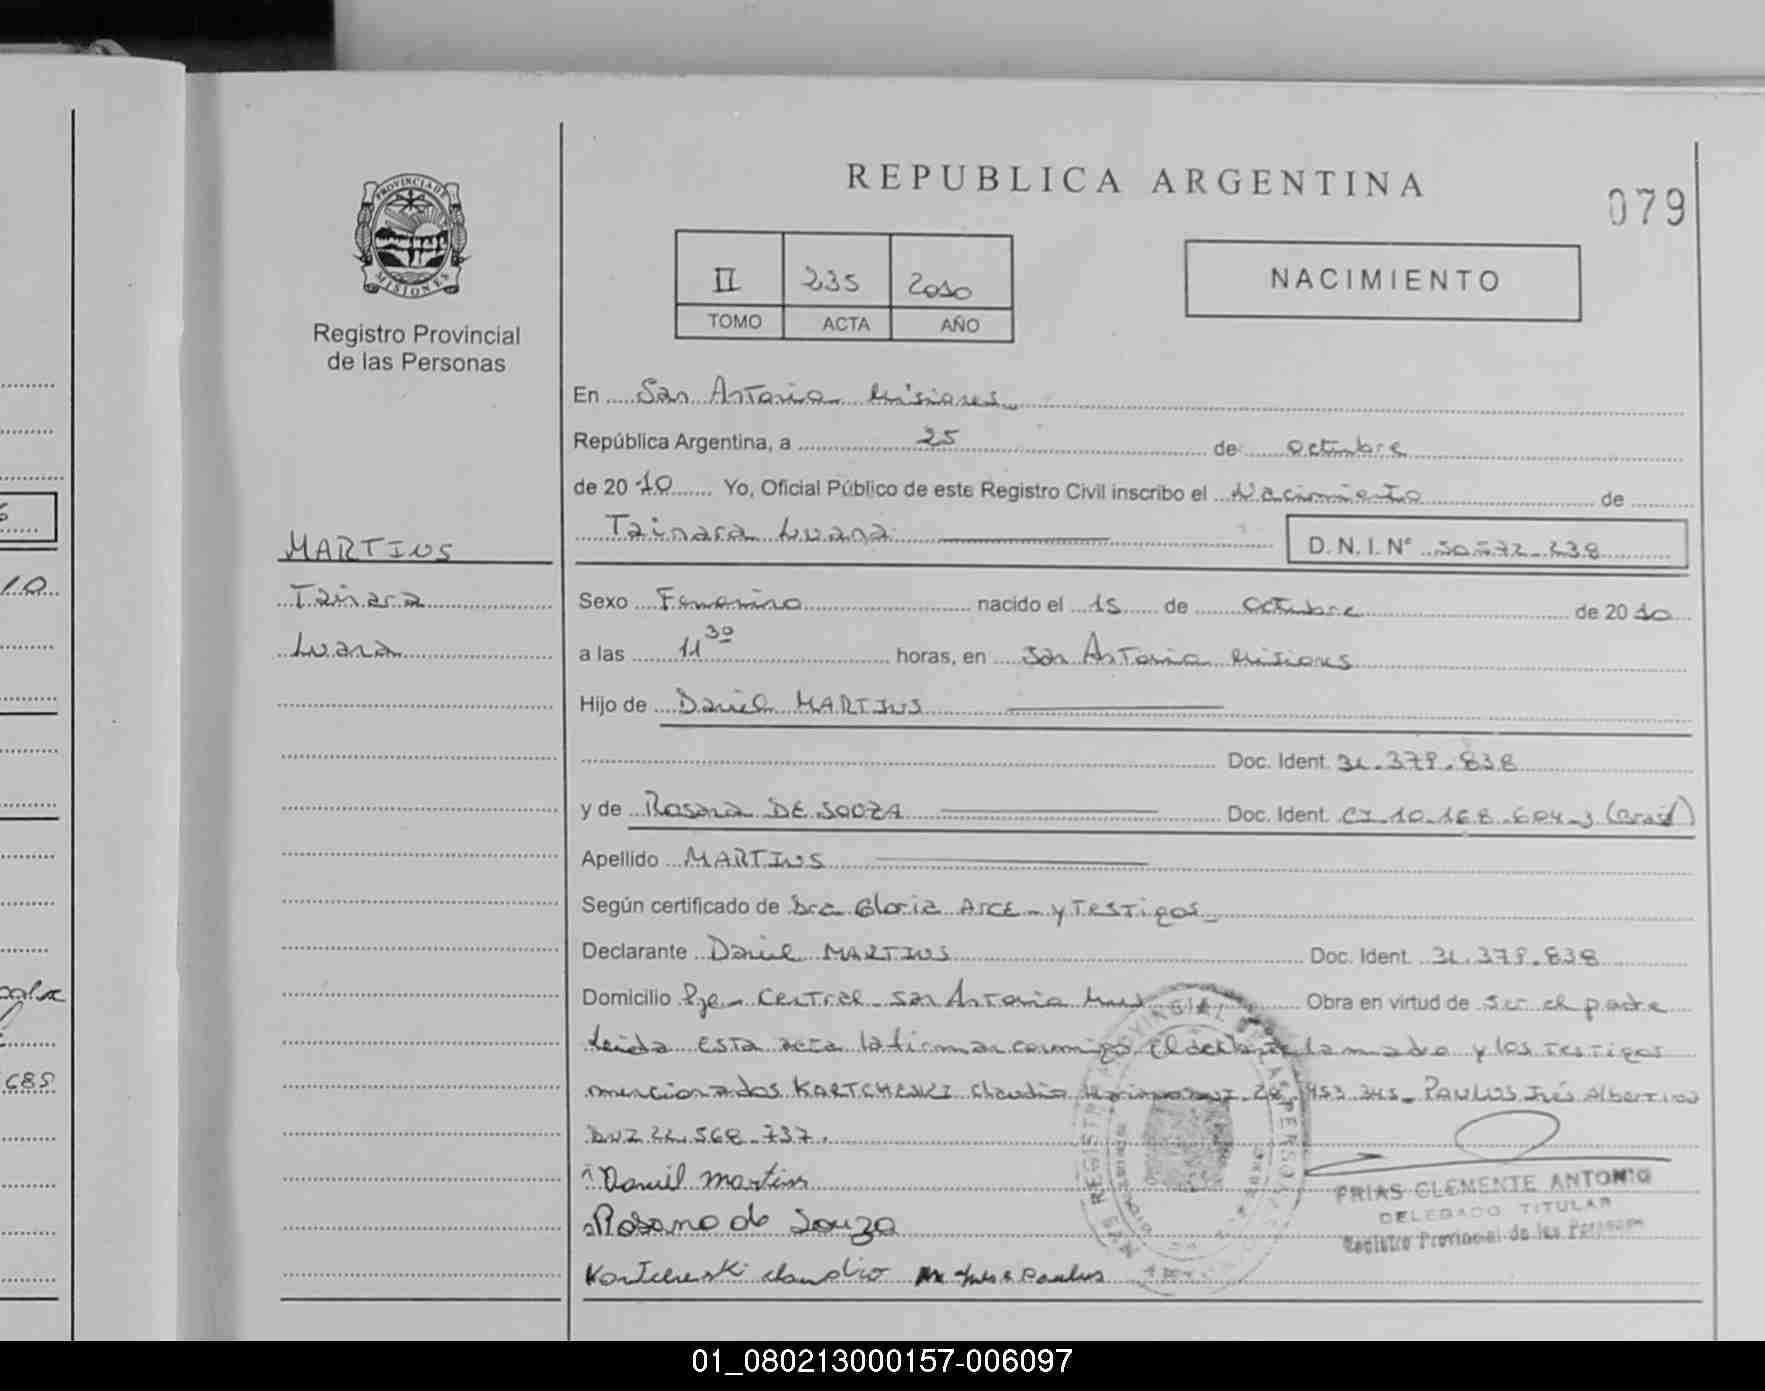 REPUBLICA ARGENTINA
079
PROVINCIA DE
MISIONES
Registro Provincial
de las Personas
II 235 2010
TOMO ACTA AÑO
NACIMIENTO
En San Antonio Misiones
República Argentina, a 25 de octubre
de 20 10 Yo, Oficial Público de este Registro Civil inscribo el Nacimiento de
Tainara Luana D.N.I. Nº 50.572.238
MARTINS
Tainara
Luana
Sexo Femenino nacido el 15 de octubre de 20 10
a las 11 30 horas, en San Antonio Misiones
Hijo de Daniel MARTINS
Doc. Ident. 31.379.838
y de Rosana DE SOUZA Doc. Ident. CI 10.168.604-3 (Brasil)
Apellido MARTINS
Según certificado de Dra Gloria Arce - y Testigos
Declarante Daniel MARTINS Doc. Ident. 31.379.838
Domicilio Pje. Central San Antonio Mnes Obra en virtud de ser el padre
Leida esta acta la firman conmigo el declarante la madre y los testigos
mencionados KARTCHESKI Claudio 28.453.345 - PAULUS Inés Albertina
DNI 22.568.737.
Daniel Martins
Rosana de Souza
Kartcheski claudio Inés Paulus
FRIAS CLEMENTE ANTONIO
DELEGADO TITULAR
Registro Provincial de las Personas
10
689
01_080213000157-006097